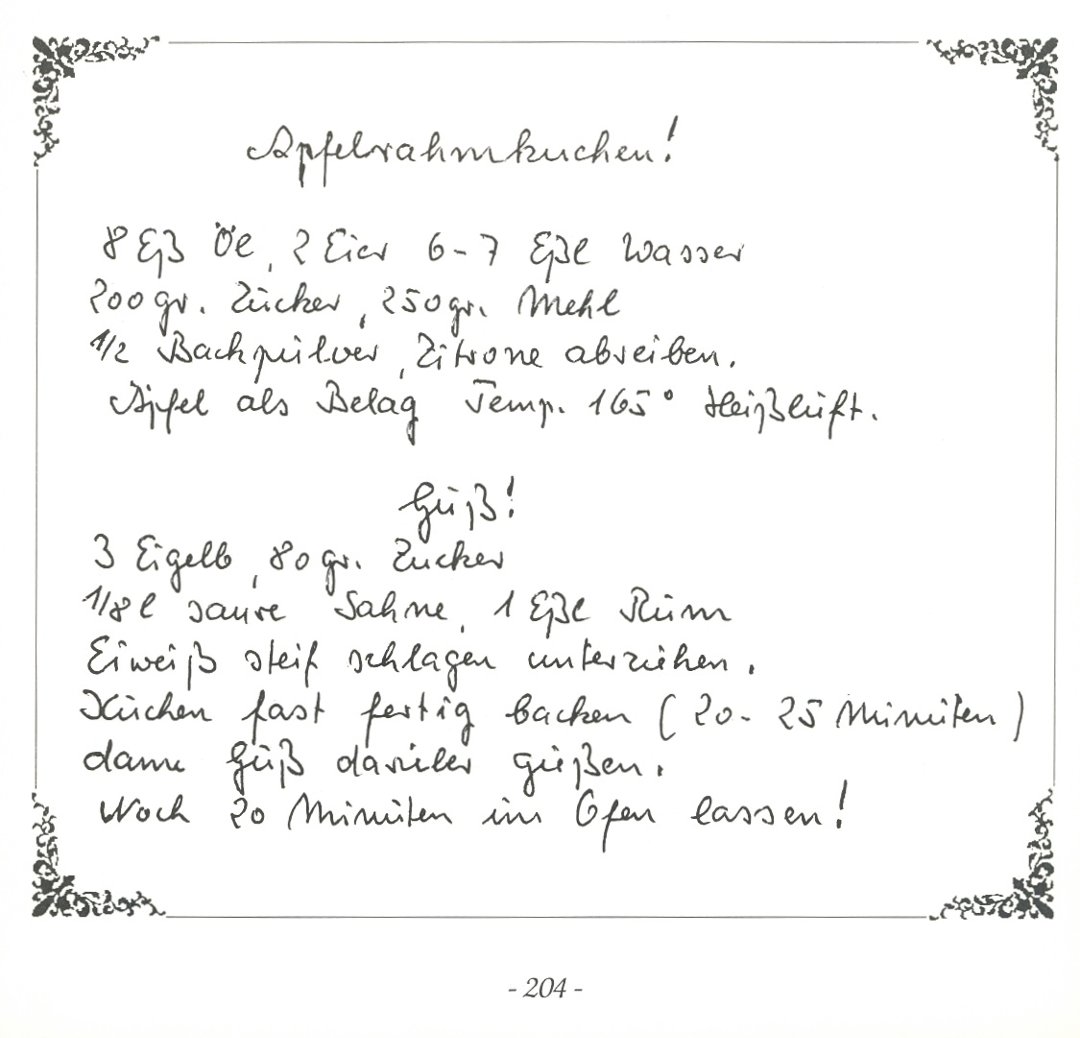 Apfelrahmkuchen!
8 Eß Öl, 2 Eier 6-7 Eßl Wasser
200 gr. Zucker, 250 gr. Mehl
1/2 Backpulver, Zitrone abreiben.
Äpfel als Belag Temp. 165° Heißluft.
Guß!
3 Eigelb, 80 gr. Zucker
1/8 l saure Sahne, 1 Eßl Rum
Eiweiß steif schlagen unterziehen.
Kuchen fast fertig backen (20-25 Minuten)
dann Guß darüber gießen.
Noch 20 Minuten im Ofen lassen!
- 204 -